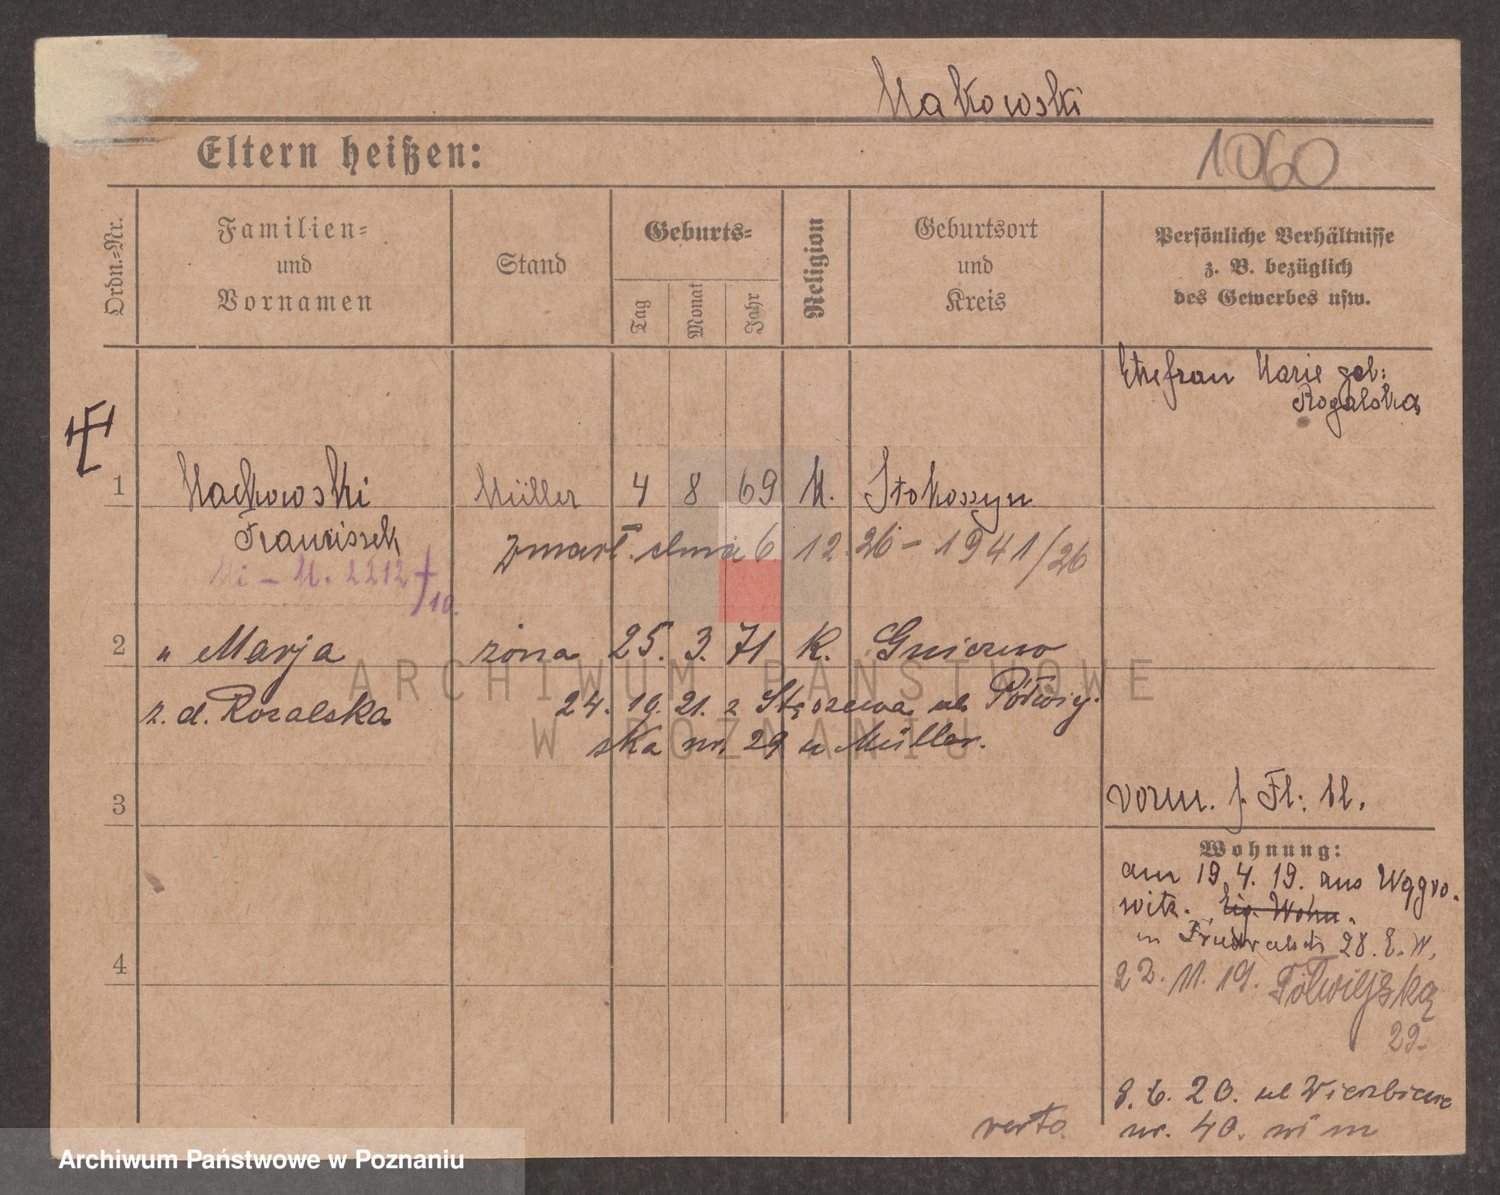 Makowski
Eltern heißen:
1060
Ordn.-Nr.
Familien-
und
Vornamen
Stand
Geburts-
Tag
Monat
Jahr
Religion
Geburtsort
und
Kreis
Persönliche Verhältnisse
z. B. bezüglich
des Gewerbes usw.
Ehefrau Marie geb:
Rogalska
1
Machowski Müller 4 8 69 K. Stokoszyn
Franzisek
zmarł dnia 6 12 26 - 1941/26
2212
10.
2
" Marja żona 25. 3. 71 K. Gniezno
z. d. Rozalska
24. 10. 21. z ul. Półwiej-
ska nr. 29 u Müller.
3
vorm. Fl: Bl.
Wohnung:
am 19. 4. 19. aus Wągro-
witz. Eig. Wohn.
in 28. E. W.
4
22. 11. 19. Półwiejską
29.
8. 6. 20. ul Wierzbięcice
nr. 40.
verto.
ARCHIWUM PAŃSTWOWE
W POZNANIU
Archiwum Państwowe w Poznaniu